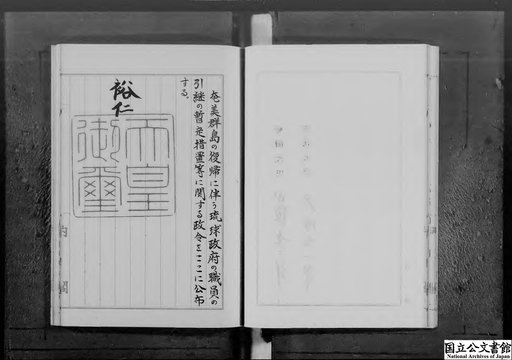 奄美群島の復帰に伴う琉球政府の職員の
引継の暫定措置等に関する政令をここに公布
する。
裕仁
天皇
御璽
内閣
国立公文書館
National Archives of Japan